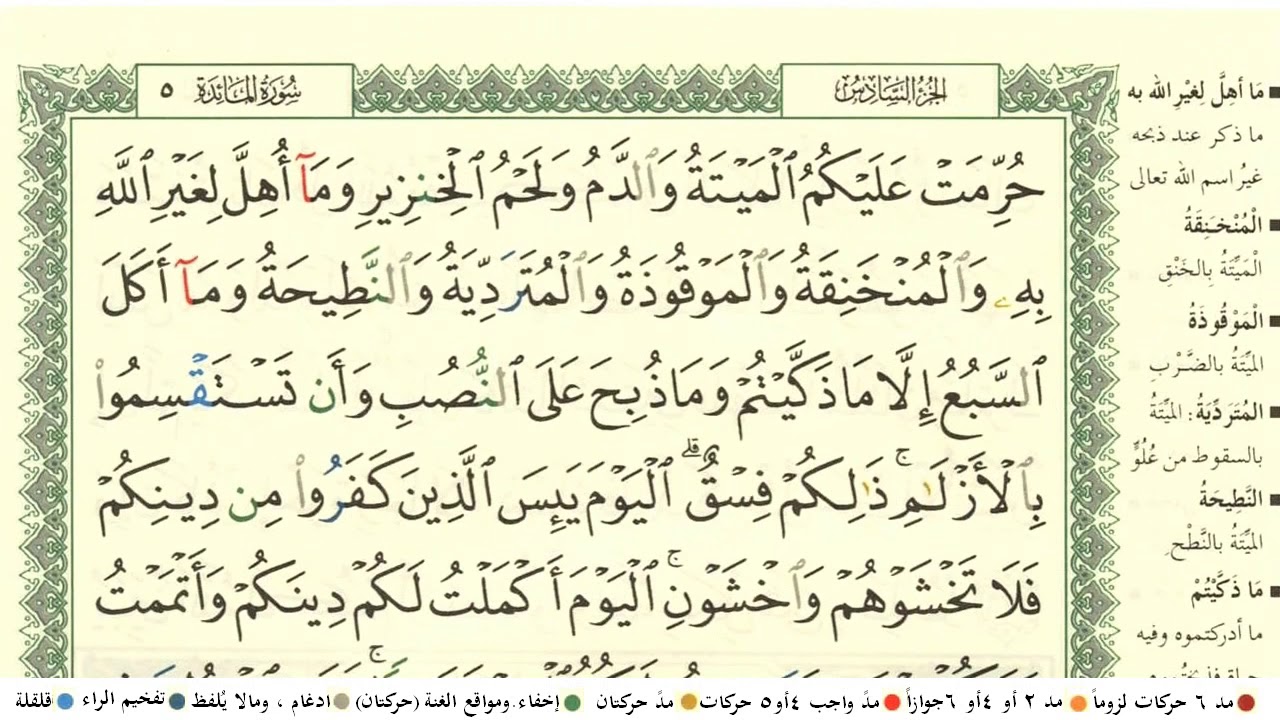 الجزء السادس
سورة المائدة ٥
حُرِّمَتْ عَلَيْكُمُ ٱلْمَيْتَةُ وَٱلدَّمُ وَلَحْمُ ٱلْخِنزِيرِ وَمَآ أُهِلَّ لِغَيْرِ ٱللَّهِ
بِهِۦ وَٱلْمُنْخَنِقَةُ وَٱلْمَوْقُوذَةُ وَٱلْمُتَرَدِّيَةُ وَٱلنَّطِيحَةُ وَمَآ أَكَلَ
ٱلسَّبُعُ إِلَّا مَا ذَكَّيْتُمْ وَمَا ذُبِحَ عَلَى ٱلنُّصُبِ وَأَن تَسْتَقْسِمُوا۟
بِٱلْأَزْلَٰمِ ۚ ذَٰلِكُمْ فِسْقٌ ۗ ٱلْيَوْمَ يَئِسَ ٱلَّذِينَ كَفَرُوا۟ مِن دِينِكُمْ
فَلَا تَخْشَوْهُمْ وَٱخْشَوْنِ ۚ ٱلْيَوْمَ أَكْمَلْتُ لَكُمْ دِينَكُمْ وَأَتْمَمْتُ
مَا أهِلَّ لِغَيْرِ الله به
ما ذكر عند ذبحه
غيرُ اسم الله تعالى
الْمُنْخَنِقَةُ
الْمَيِّتَةُ بِالخَنْقِ
الْمَوْقُوذَةُ
الميِّتَةُ بالضَّرْبِ
المُتَرَدِّيَةُ: الميِّتَةُ
بالسقوط من عُلُوٍّ
النَّطِيحَةُ
الميِّتَةُ بالنَّطْحِ
مَا ذَكَّيْتُمْ
ما أدركتموه وفيه
مد ٦ حركات لزوماً مد ٢ أو ٤أو ٦جوازاً مدّ واجب ٤أو٥ حركات مدّ حركتان إخفاء.ومواقع الغنة (حركتان) ادغام ، ومالا يُلفظ تفخيم الراء قلقلة